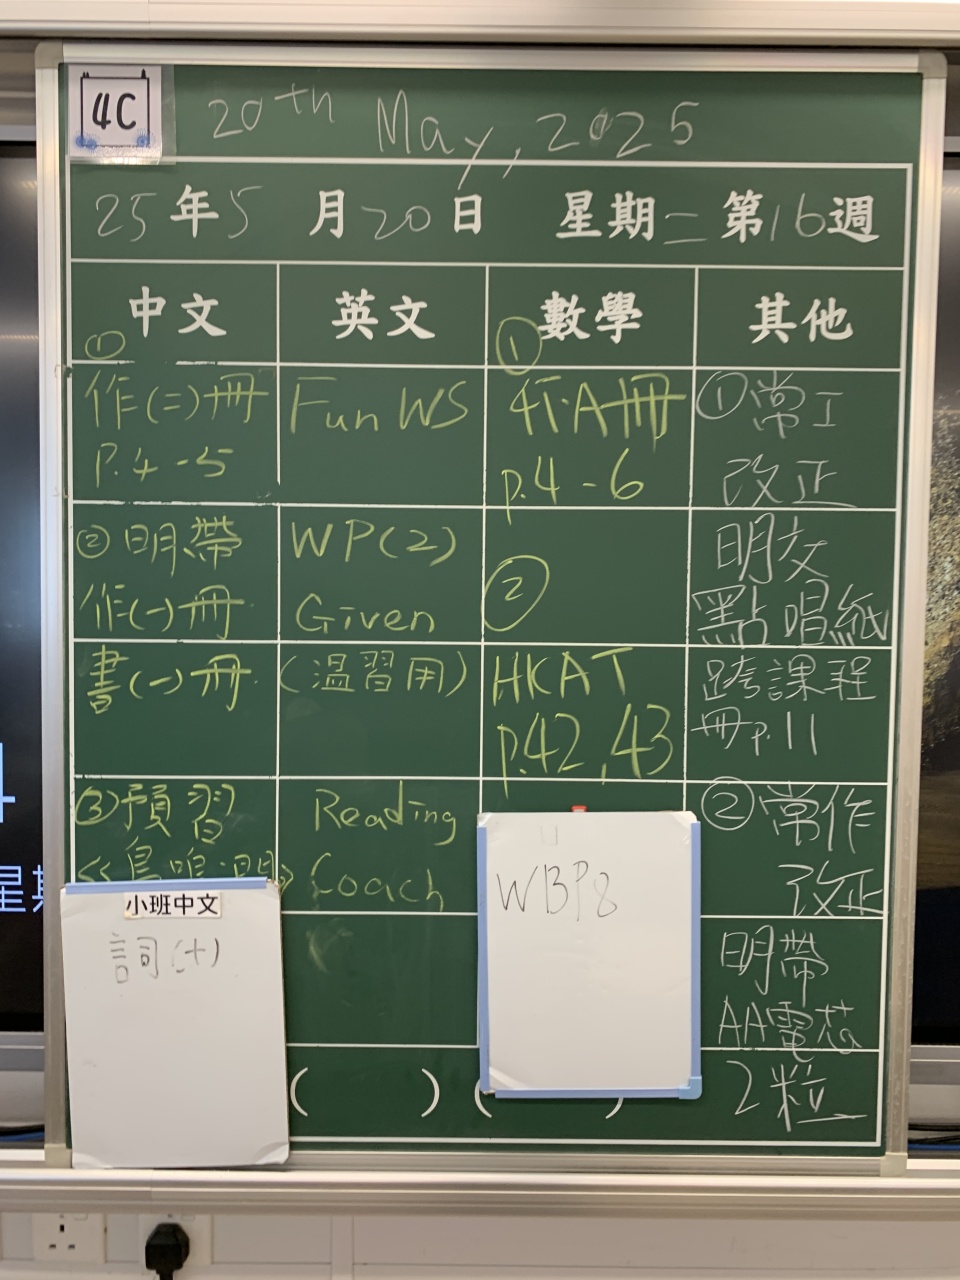 4C
20th May, 2025
25年5月20日 星期二 第16週
中文
①
作(二)冊
P.4-5
②明帶
作(一)冊
書(一)冊
③預習
小班中文
詞(十)
英文
Fun WS
WP(2)
Given
(溫習用)
Reading
Coach
( )
數學
①
作A冊
p.4-6
②
HKAT
p.42,43
WBP8
( )
其他
①常工
改正
明交
點唱紙
跨課程
冊p.11
②常作
改正
明帶
AA電芯
2粒